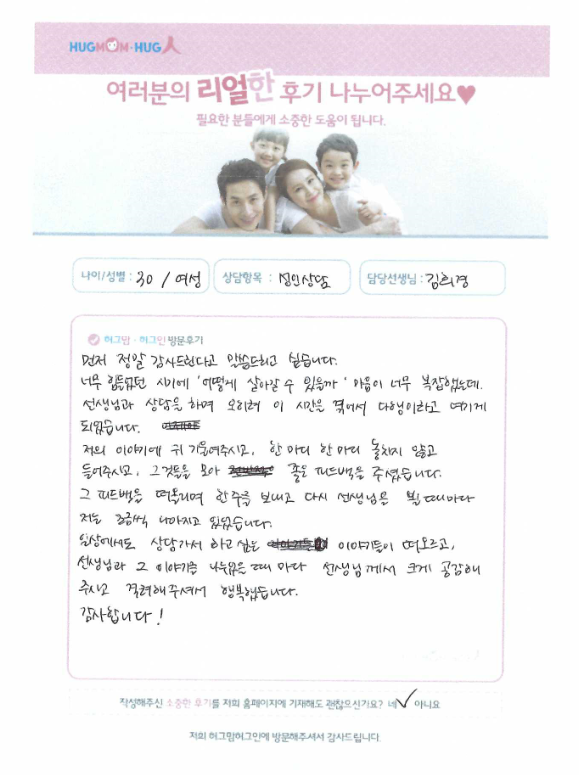 HUGMOM·HUG人
여러분의 리얼한 후기 나누어주세요♥
필요한 분들에게 소중한 도움이 됩니다.
나이/성별 : 30 / 여성 상담항목 : 성인상담 담당선생님 : 김희경
허그맘·허그인 방문후기
먼저 정말 감사드린다고 말씀드리고 싶습니다.
너무 힘들었던 시기에 '어떻게 살아갈 수 있을까' 마음이 너무 복잡했는데.
선생님과 상담을 하며 오히려 이 시간을 겪어서 다행이라고 여기게
되었습니다.
저의 이야기에 귀 기울여주시고, 한 마디 한 마디 놓치지 않고
들어주시고, 그것들을 모아 좋은 피드백을 주셨습니다.
그 피드백을 떠올리며 한 주를 보내고 다시 선생님을 뵐 때마다
저는 조금씩 나아지고 있었습니다.
일상에서도 상담가서 하고 싶은 이야기들이 떠오르고,
선생님과 그 이야기를 나눴을 때 마다 선생님께서 크게 공감해
주시고 격려해주셔서 행복했습니다.
감사합니다!
작성해주신 소중한 후기를 저희 홈페이지에 기재해도 괜찮으신가요? 네✓ 아니요
저희 허그맘허그인에 방문해주셔서 감사드립니다.